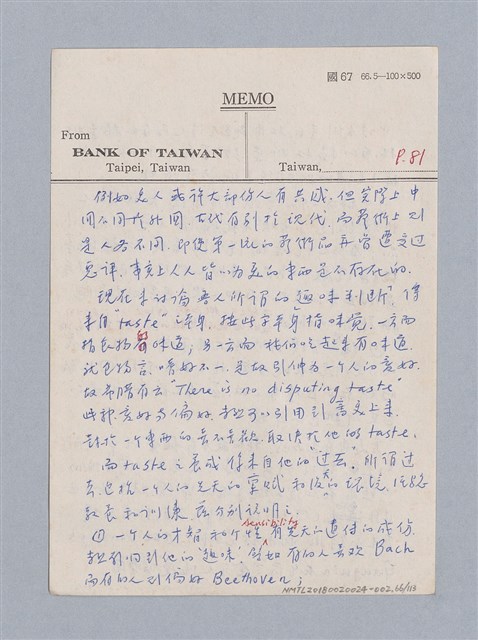 國67 66.5—100×500
MEMO
From
BANK OF TAIWAN
Taipei, Taiwan
Taiwan,
P. 81
例如惡人或許大部份人有共感,但實際上中
國不同於外國,古代有別於現代,而藝術上則
是人各不同,即使第一流的藝術品再曾遭受过
惡評,事实上人人皆以为美的東西是不存在的。
現在来討論吾人所謂的"趣味判断",係
来自"taste"這字,按此字本身指味覚,一方面
指食物的味道;另一方面我們吃起来有味道,
就包括嗜好,是故引伸为一个人的喜好,
故希腊有云"There is no disputing taste"
些种喜好与偏好,都可以引用到審美上来,
對於一个東西的喜不喜歡,取决於他的 taste。
而 taste 之養成係来自他的"过去",所謂过
去包括一个人的先天的稟賦和後天的環境,
教長和訓練,茲分别説明之。
① 一个人的才智和个性 sensibility 有先天的遺傳的成份,
都影响到他的"趣味",例如有的人喜欢 Bach
而有的人則偏好 Beethoven;
NMTL20180020024-002.66/113